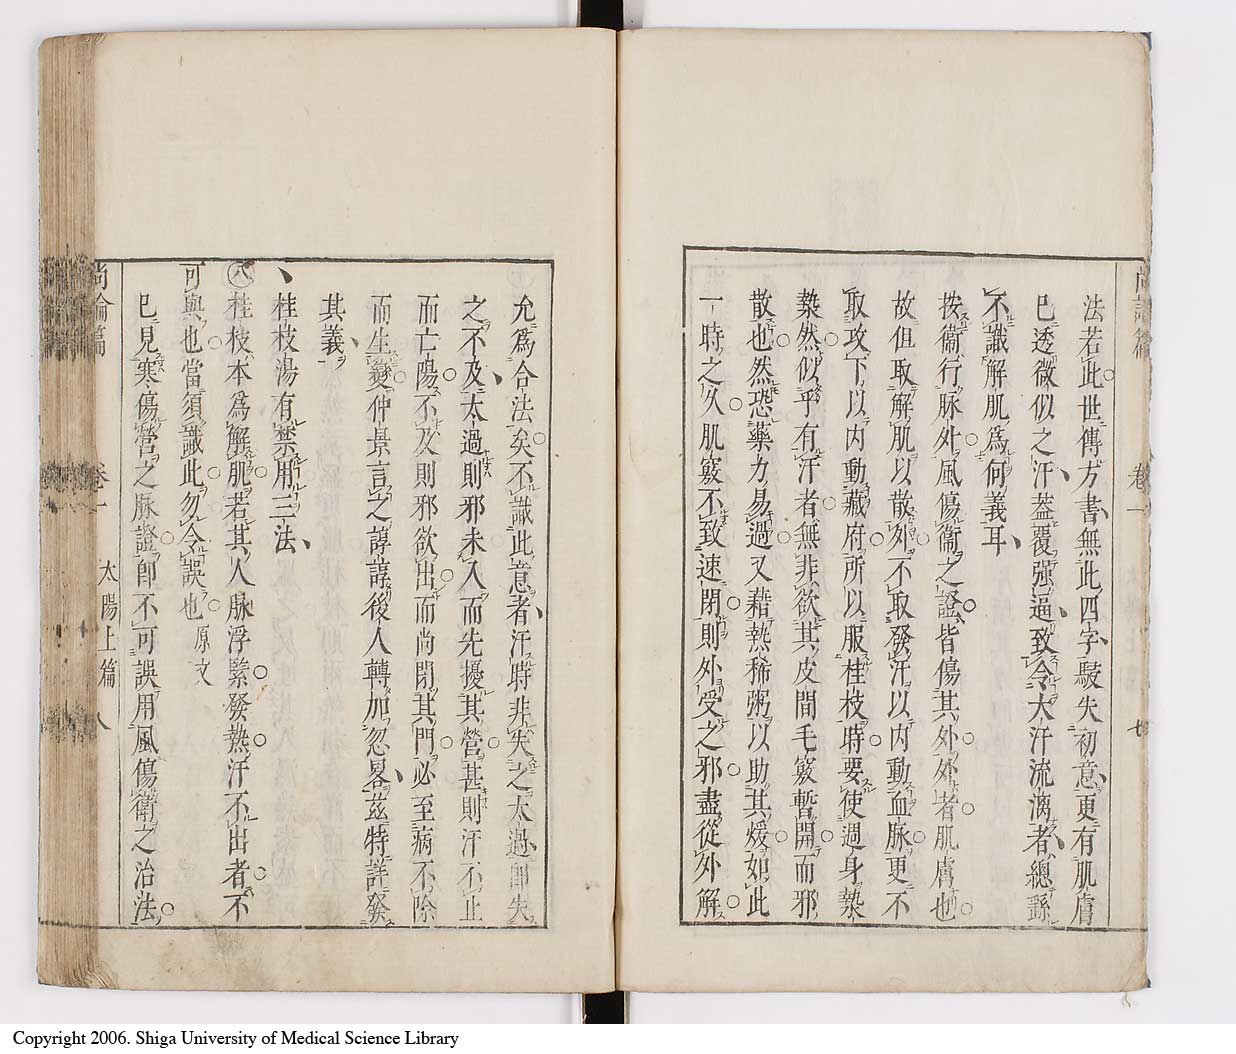 法若此世傳方書無此四字駁失初意更有肌膚
已透微似之汗蓋覆強逼致令大汗流漓者總繇
不識解肌爲何義耳
按衞行脉外風傷衞之證皆傷其外外者肌膚也
故但取解肌以散外不取發汗以內動血脉更不
取攻下以內動藏府所以服桂枝時要使遍身漐
漐然似乎有汗者無非欲其皮間毛竅暫開而邪
散也然恐藥力易過又藉熱稀粥以助其煖如此
一時之久肌竅不致速閉則外受之邪盡從外解
允爲合法矣不識此意者汗時非失之太過即失
之不及太過則邪未入而先擾其營甚則汗不止
而亡陽不及則邪欲出而尚閉其門必至病不除
而生變仲景言之諄諄後人轉加忽畧茲特詳發
其義
桂枝湯有禁用三法
八 桂枝本爲解肌若其人脉浮緊發熱汗不出者不
可與也當須識此勿令誤也原文
已見寒傷營之脉證即不可誤用風傷衞之治法
尚論篇 卷一 太陽上篇 八
Copyright 2006. Shiga University of Medical Science Library